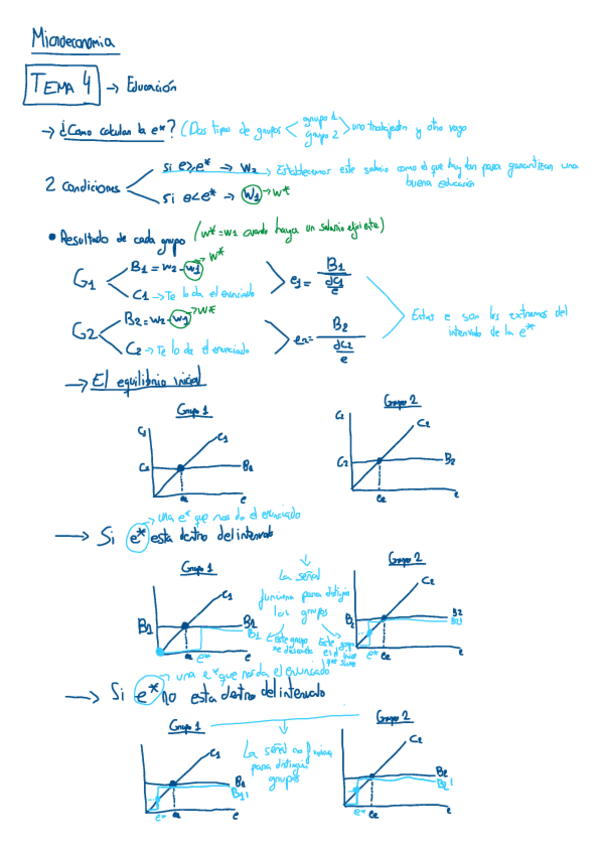 Microeconomia
TEMA 4 → Educación
→ ¿Como calculan la e*? (Dos tipos de grupos < grupo 1 grupo 2 > uno trabajador y otro vago
2 condiciones
si e≥e* → W2 → Establecemos este salario como el que hay dar para garantizar una buena educación
si e<e* → W1 → w*
• Resultado de cada grupo (w*=w1 cuando haya un salario eficiente)
G1
B1 = W2 - W1 → w*
C1 → Te lo da el enunciado
e1 = B1 / dC1 / e
G2
B2 = W2 - W1 → w*
C2 → Te lo da el enunciado
e2 = B2 / dC2 / e
Estas e son los extremos del intervalo de la e*
→ El equilibrio inicial
Grupo 1
C1
C1
C2
B1
e
Grupo 2
C2
C2
C2
B2
e2
e
→ una e* que nos da el enunciado
→ Si e* esta dentro del intervalo
Grupo 1
C1
B1
B1'
e*
e
La señal funciona para distinguir los grupos
Este grupo
Este grupo es el único que
Grupo 2
C2
B2
B2
B2'
e*
e2
e
→ una e* que nos da el enunciado
→ Si e* no esta dentro del intervalo
Grupo 1
C1
B1
B1'
e*
e
La señal no funciona para distinguir grupos
Grupo 2
C2
B2
B2'
e*
e2
e